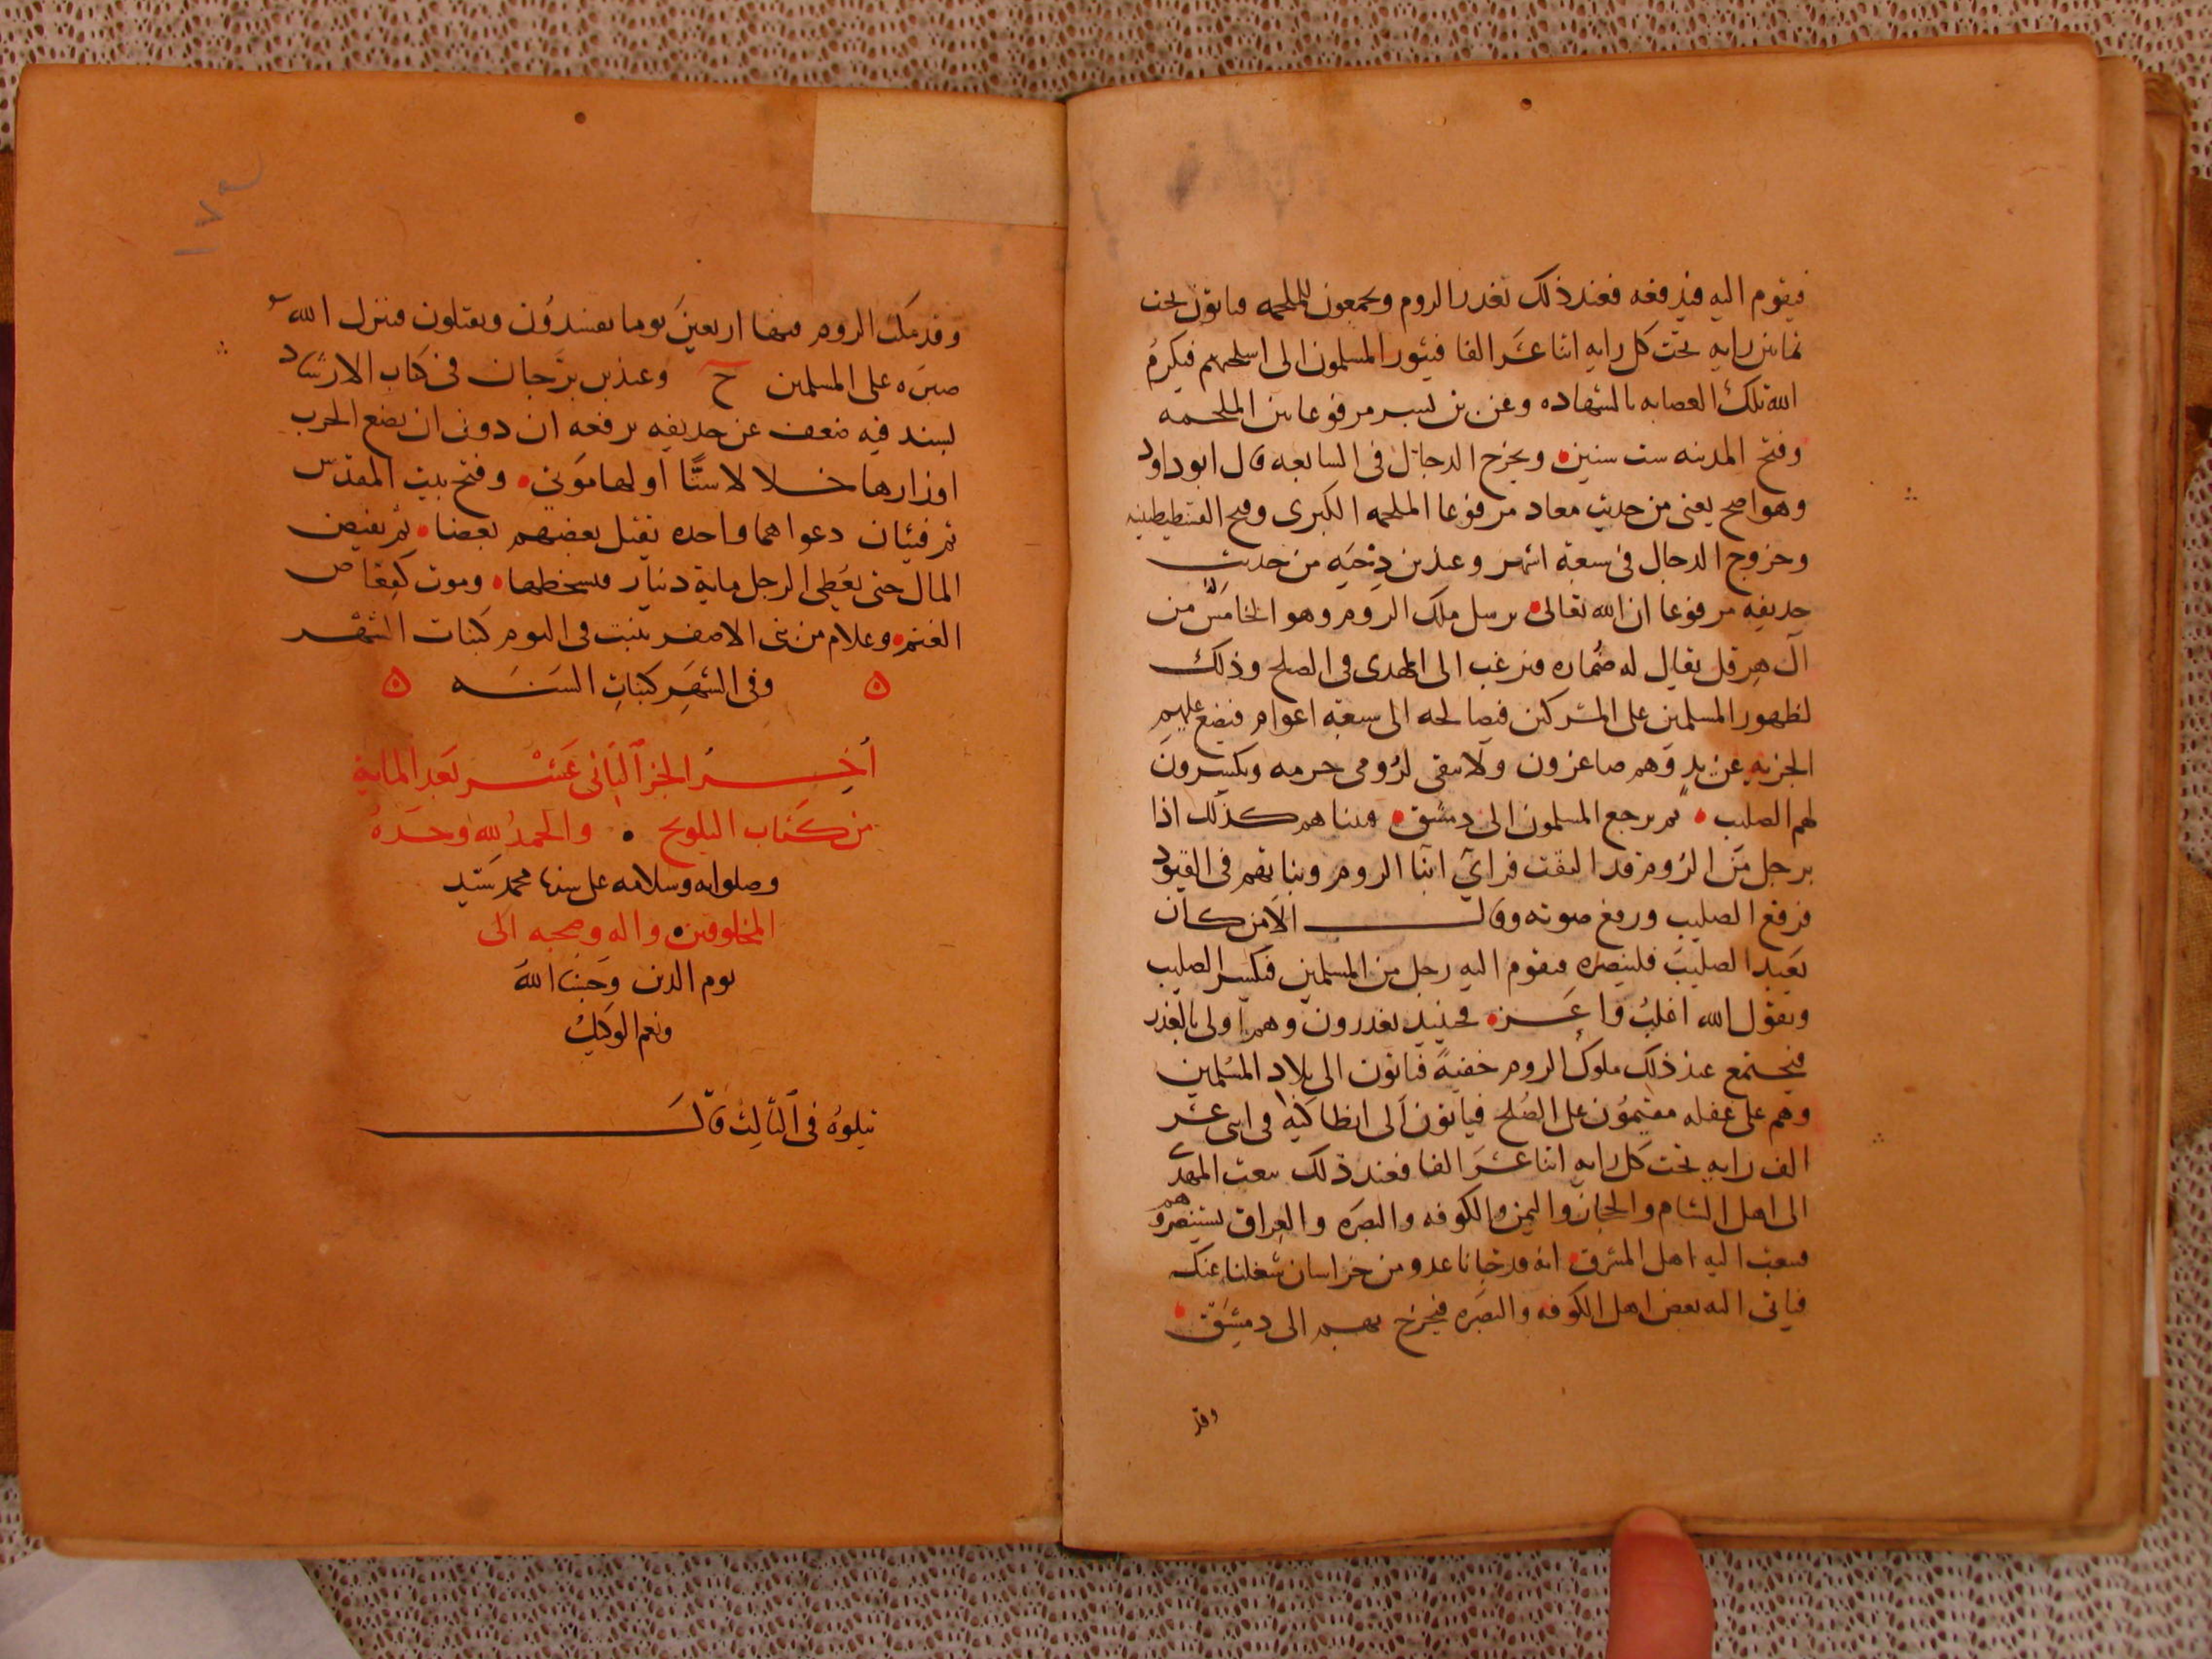 فيقوم اليه فيدفعه فعند ذلك تغدر الروم ويجمعون للملحمه فياتون تحت
ثمانين رايه تحت كل رايه اثنا عشر الفا فيثور المسلمون الى اسلحتهم فيكرم
الله تلك العصابه بالشهاده وعن بن بسر مرفوعا بين الملحمه
وفتح المدينه ست سنين ويخرج الدجال في السابعه قال ابو داود
وهو اصح يعنى من حديث معاد مرفوعا الملحمه الكبرى وفتح القسطنطينيه
وخروج الدجال في سبعة اشهر وعند بن دحيه من حديث
حذيفه مرفوعا ان الله تعالى يرسل ملك الروم وهو الخامس من
ال هرقل يقال له ضماره فيرغب الى المهدى في الصلح وذلك
لظهور المسلمين على المشركين فيصالحه الى سبعة اعوام فيضع عليهم
الجزية عن يد وهم صاغرون ولا يبقى لرومى حرمه ويكسرون
لهم الصليب ثم يرجع المسلمون الى دمشق فبينا هم كذلك اذا
برجل من الروم قد التفت فراى ابنا الروم وبناتهم في القيود
فرفع الصليب ورفع صوته وقال الا من كان
يعبد الصليب فلينصره فيقوم اليه رجل من المسلمين فيكسر الصليب
ويقول الله اغلب واعز فحينيذ يغدرون وهم اولى بالغدر
فيجتمع عند ذلك ملوك الروم خفية فياتون الى بلاد المسلمين
وهم على غفله مقيمون على الصلح فياتون الى انطاكية في اثنى عشر
الف رايه تحت كل رايه اثنا عشر الفا فعند ذلك يبعث المهدى
الى اهل الشام والحجاز واليمن والكوفه والبصره والعراق يستنصرهم
فيبعث اليه اهل المشرق انه قد جانا عدو من خراسان شغلنا عنك
فياتى اليه بعض اهل الكوفه والبصره فيخرج بهم الى دمشق
وقد
١٧٥
وقد مكث الروم فيها اربعين يوما يفسدون ويقتلون فينزل الله
صبره على المسلمين ح وعند بن برجان في كتاب الارشاد
بسند فيه ضعف عن حذيفه يرفعه ان دون ان يضع الحرب
اوزارها خلالا ستا اولها موتي وفتح بيت المقدس
ثم فئتان دعواهما واحده يقتل بعضهم بعضا ثم يفيض
المال حتى يعطى الرجل ماية دينار فيسخطها وموت كقعاص
الغنم وغلام من بنى الاصفر ينبت في اليوم كنبات الشهر
وفي الشهر كنبات السنه
اخر الجز الثانى عشر بعد الماية
من كتاب التلويح والحمد لله وحده
وصلواته وسلامه على سيدنا محمد سيد
المخلوقين واله وصحبه الى
يوم الدين وحسبنا الله
ونعم الوكيل
يتلوه في الثالث قال